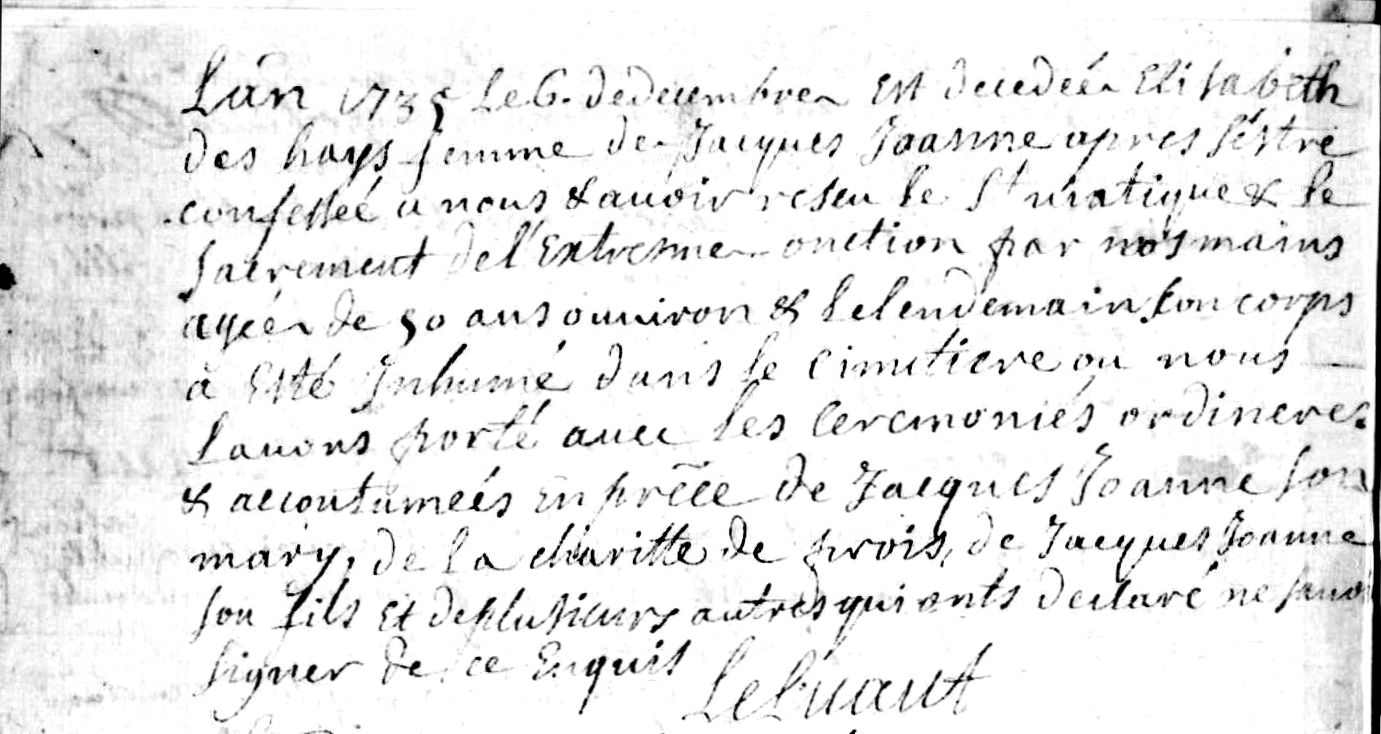 Lan 1735 Le 6. de decembre Est decedée Elisabeth
des hays femme de Jacques Joanne apres s'estre
confessée a nous & auoir reseu le St viatique & le
sacrement de l'Extresme onction par nos mains
agée de 50 ans ouuiron & le lendemain son corps
à Esté Inhumé dans le cimetiere ou nous
Lauons porté auec les Ceremoniés ordineres
& accoutumeés En prēce de Jacques Joanne son
mary, de la charitte de prois, de Jacques Joanne
son fils Et de plusieurs autres qui onts declaré ne sauoi
signer de ce Enquis